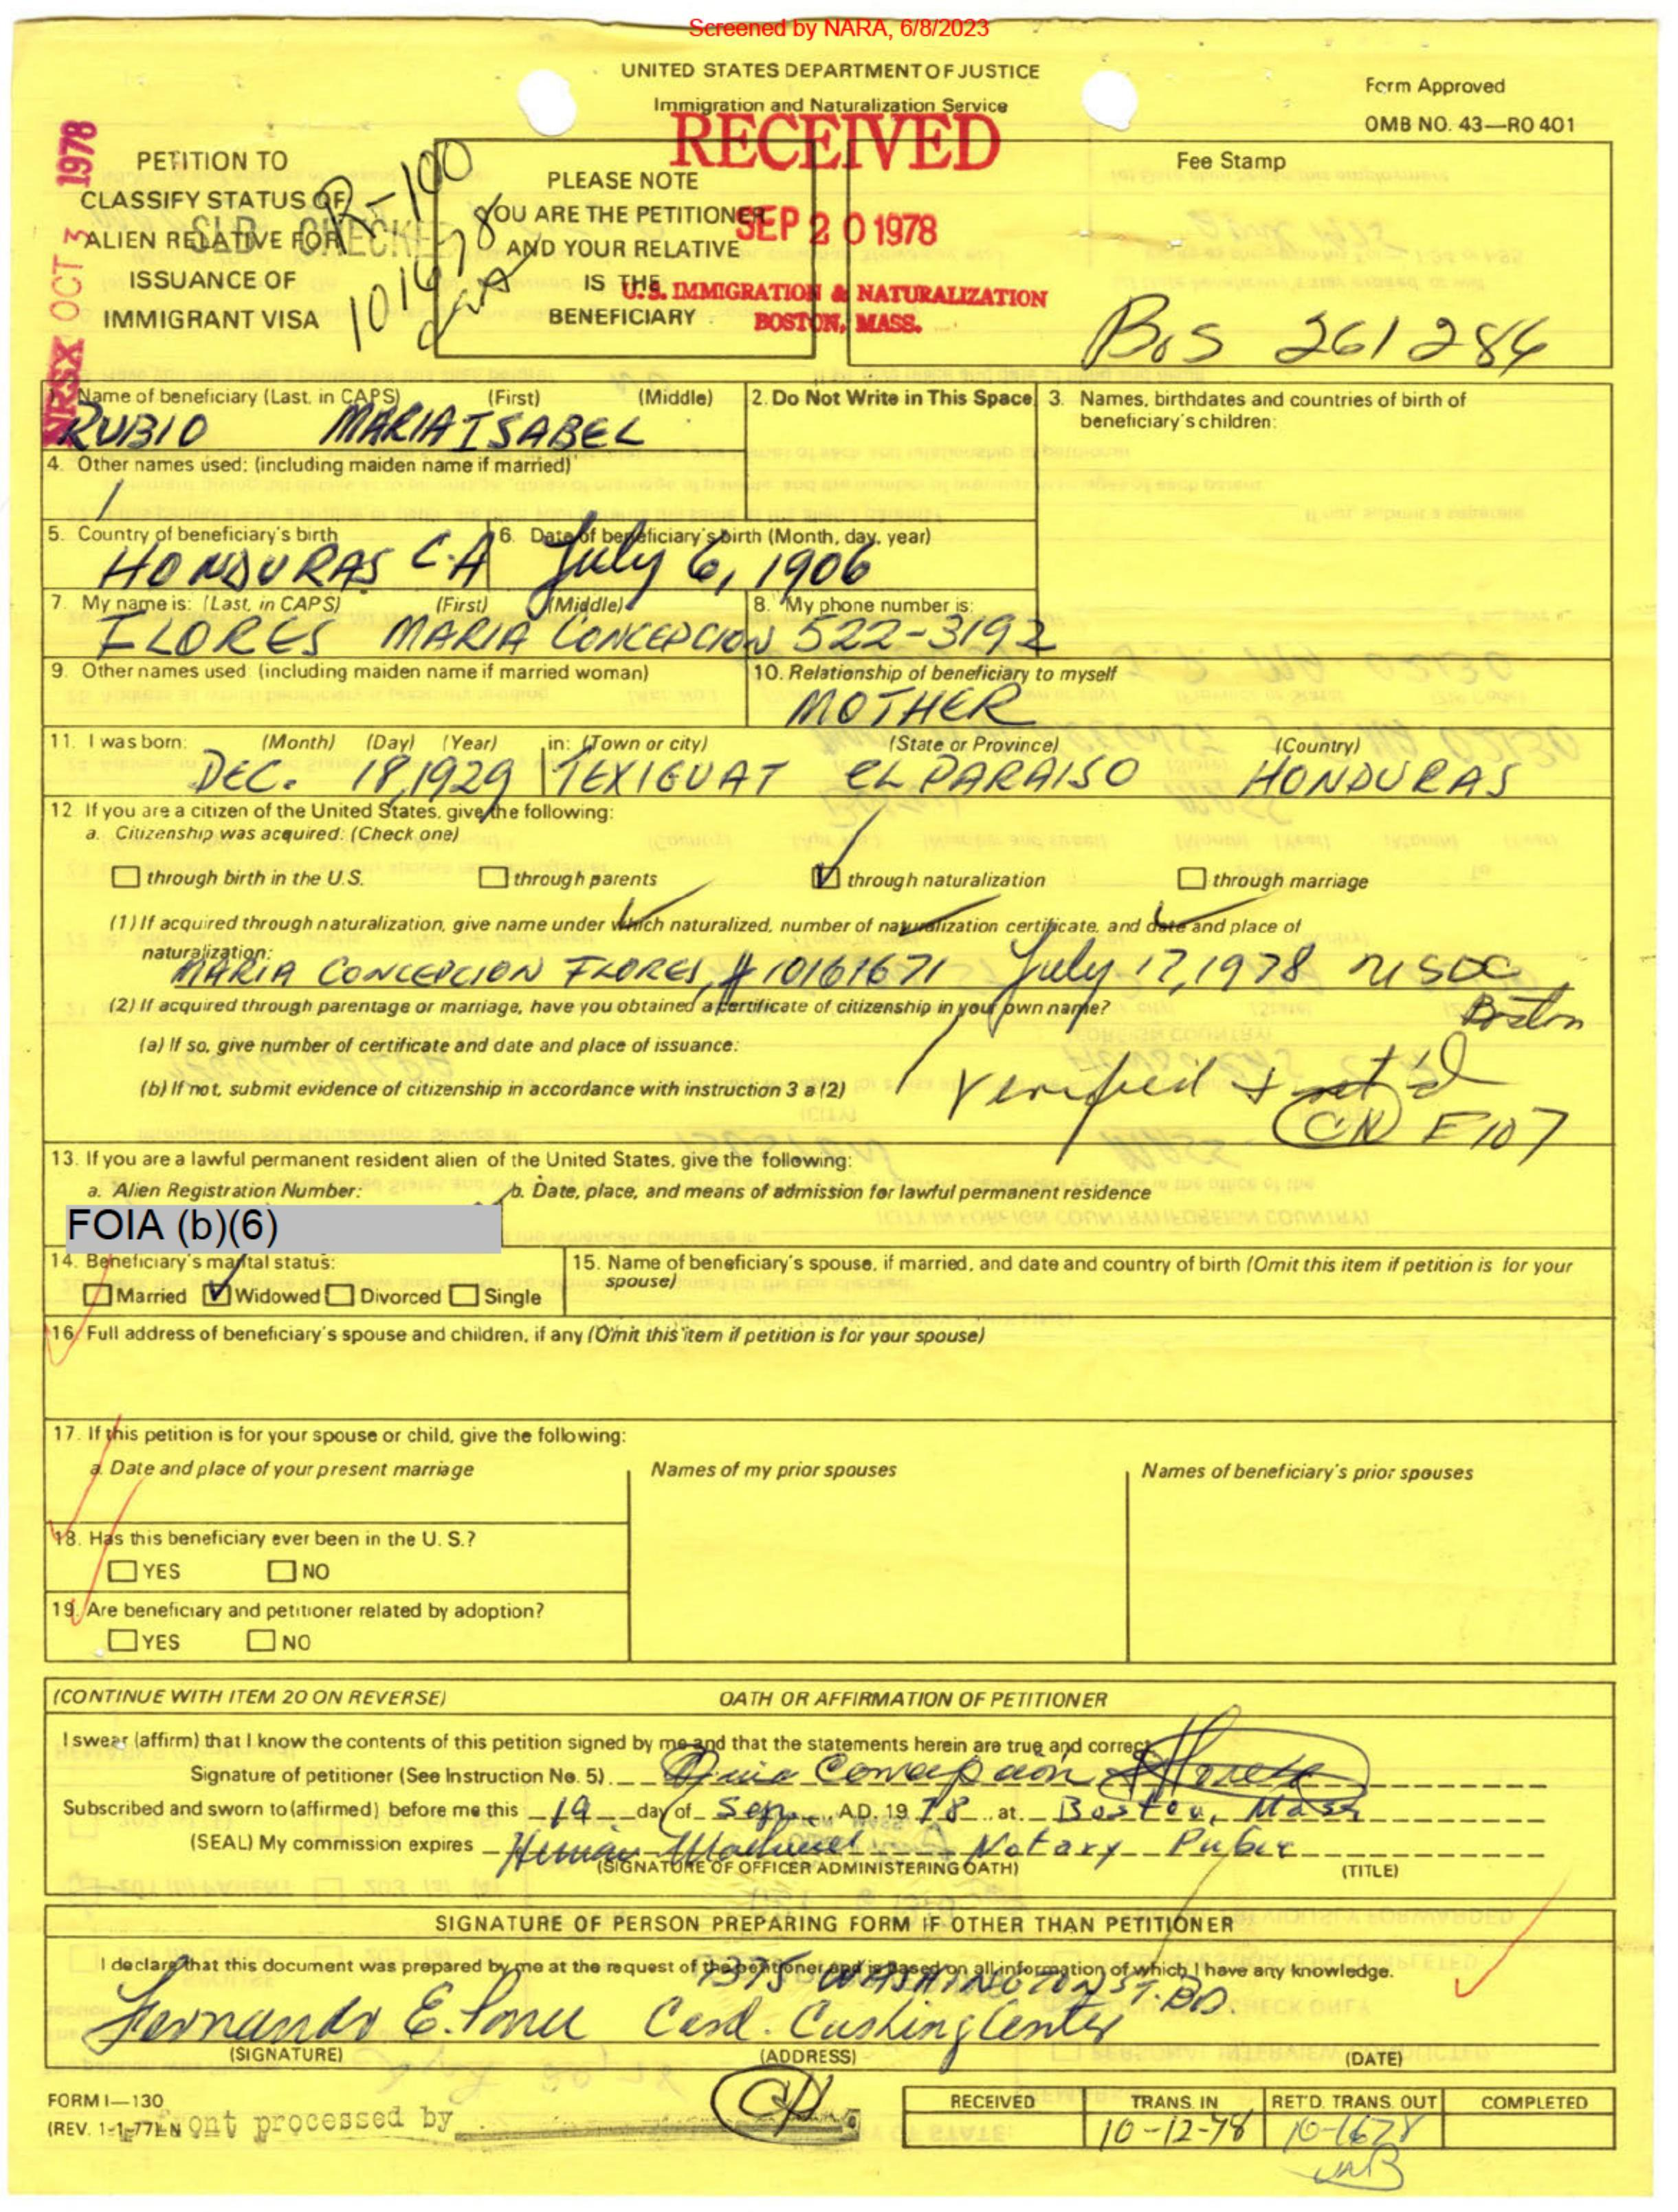 Screened by NARA, 6/8/2023
UNITED STATES DEPARTMENT OF JUSTICE
Immigration and Naturalization Service
Form Approved
OMB NO. 43—RO 401
RECEIVED
SEP 20 1978
U.S. IMMIGRATION & NATURALIZATION
BOSTON, MASS.
OCT 3 1978
PETITION TO
CLASSIFY STATUS OF
ALIEN RELATIVE FOR
ISSUANCE OF
IMMIGRANT VISA
R-100
PLEASE NOTE
YOU ARE THE PETITIONER
AND YOUR RELATIVE
IS THE
BENEFICIARY
Fee Stamp
BOS 261284
1. Name of beneficiary (Last, in CAPS) (First) (Middle)
RUBIO MARIA ISABEL
2. Do Not Write in This Space
3. Names, birthdates and countries of birth of
beneficiary's children:
4. Other names used: (including maiden name if married)
5. Country of beneficiary's birth
HONDURAS C.A
6. Date of beneficiary's birth (Month, day, year)
July 6, 1906
7. My name is: (Last, in CAPS) (First) (Middle)
FLORES MARIA CONCEPCION
8. My phone number is:
522-3192
9. Other names used: (including maiden name if married woman)
10. Relationship of beneficiary to myself
MOTHER
11. I was born: (Month) (Day) (Year) in: (Town or city) (State or Province) (Country)
DEC. 18, 1929 TEXIGUAT EL PARAISO HONDURAS
12 If you are a citizen of the United States, give the following:
a. Citizenship was acquired: (Check one)
through birth in the U.S. through parents through naturalization through marriage
(1) If acquired through naturalization, give name under which naturalized, number of naturalization certificate, and date and place of
naturalization:
MARIA CONCEPCION FLORES, #10161671 July 17, 1978 USDC
Boston
(2) If acquired through parentage or marriage, have you obtained a certificate of citizenship in your own name?
(a) If so, give number of certificate and date and place of issuance:
(b) If not, submit evidence of citizenship in accordance with instruction 3 a (2)
Verified + ret'd
CN E107
13. If you are a lawful permanent resident alien of the United States, give the following:
a. Alien Registration Number:
b. Date, place, and means of admission for lawful permanent residence
FOIA (b)(6)
14. Beneficiary's marital status:
Married Widowed Divorced Single
15. Name of beneficiary's spouse, if married, and date and country of birth (Omit this item if petition is for your
spouse)
16. Full address of beneficiary's spouse and children, if any (Omit this item if petition is for your spouse)
17. If this petition is for your spouse or child, give the following:
a. Date and place of your present marriage
Names of my prior spouses
Names of beneficiary's prior spouses
18. Has this beneficiary ever been in the U. S.?
YES NO
19. Are beneficiary and petitioner related by adoption?
YES NO
(CONTINUE WITH ITEM 20 ON REVERSE) OATH OR AFFIRMATION OF PETITIONER
I swear (affirm) that I know the contents of this petition signed by me and that the statements herein are true and correct
Signature of petitioner (See Instruction No. 5) Maria Concepcion Flores
Subscribed and sworn to (affirmed) before me this 19 day of Sep. A.D. 19 78 at Boston, Mass
(SEAL) My commission expires Notary Public
(SIGNATURE OF OFFICER ADMINISTERING OATH) (TITLE)
SIGNATURE OF PERSON PREPARING FORM IF OTHER THAN PETITIONER
I declare that this document was prepared by me at the request of the petitioner and is based on all information of which I have any knowledge.
1375 WASHINGTON ST. BO.
Fernando E. Card. Cushing Center
(SIGNATURE) (ADDRESS) (DATE)
FORM I—130
(REV. 1-1-77)N
Front processed by
RECEIVED TRANS. IN RET'D. TRANS. OUT COMPLETED
10-12-78 10-1678